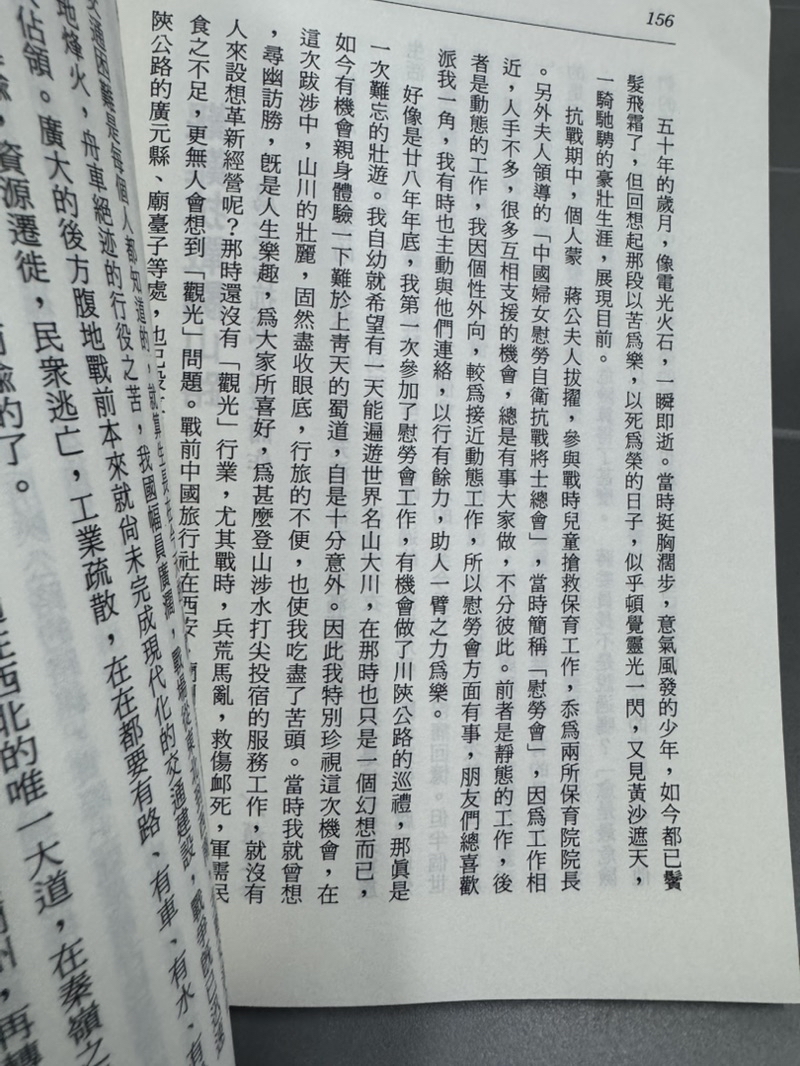 156
五十年的歲月，像電光火石，一瞬即逝。當時挺胸濶步，意氣風發的少年，如今都已鬢
髮飛霜了，但回想起那段以苦爲樂，以死爲榮的日子，似乎頓覺靈光一閃，又見黃沙遮天，
一騎馳騁的豪壯生涯，展現目前。
抗戰期中，個人蒙　蔣公夫人拔擢，參與戰時兒童搶救保育工作，忝爲兩所保育院院長
。另外夫人領導的「中國婦女慰勞自衛抗戰將士總會」，當時簡稱「慰勞會」，因爲工作相
近，人手不多，很多互相支援的機會，總是有事大家做，不分彼此。前者是靜態的工作，後
者是動態的工作，我因個性外向，較爲接近動態工作，所以慰勞會方面有事，朋友們總喜歡
派我一角，我有時也主動與他們連絡，以行有餘力，助人一臂之力爲樂。
好像是廿八年年底，我第一次參加了慰勞會工作，有機會做了川陝公路的巡禮，那眞是
一次難忘的壯遊。我自幼就希望有一天能遍遊世界名山大川，在那時也只是一個幻想而已，
如今有機會親身體驗一下難於上靑天的蜀道，自是十分意外。因此我特別珍視這次機會，在
這次跋涉中，山川的壯麗，固然盡收眼底，行旅的不便，也使我吃盡了苦頭。當時我就曾想
，尋幽訪勝，旣是人生樂趣，爲大家所喜好，爲甚麼登山涉水打尖投宿的服務工作，就沒有
人來設想革新經營呢？那時還沒有「觀光」行業，尤其戰時，兵荒馬亂，救傷卹死，軍需民
食之不足，更無人會想到「觀光」問題。戰前中國旅行社在西安
陝公路的廣元縣、廟臺子等處，也已
交通困難是每個人都知道的，就算生長在
地烽火，舟車絕迹的行役之苦，我國幅員廣濶，戰場從東北到
佔領。廣大的後方腹地戰前本來就尙未完成現代化的交通建設，戰爭旣已
，資源遷徙，民衆逃亡，工業疏散，在在都要有路、有車、有水、有
的了。
西北的唯一大道，在秦嶺之
州，再轉